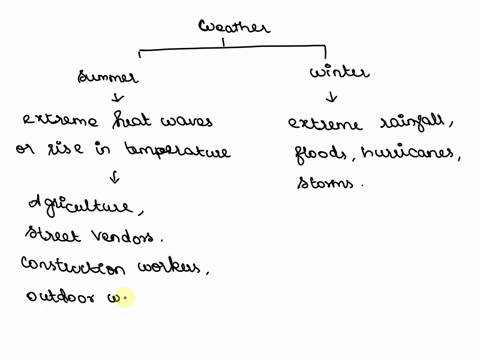 Weather
Summer
winter
extreme heat waves
or rise in temperature
extreme rainfall,
floods, hurricanes,
storms.
Agriculture,
street vendors.
construction workers,
outdoor w